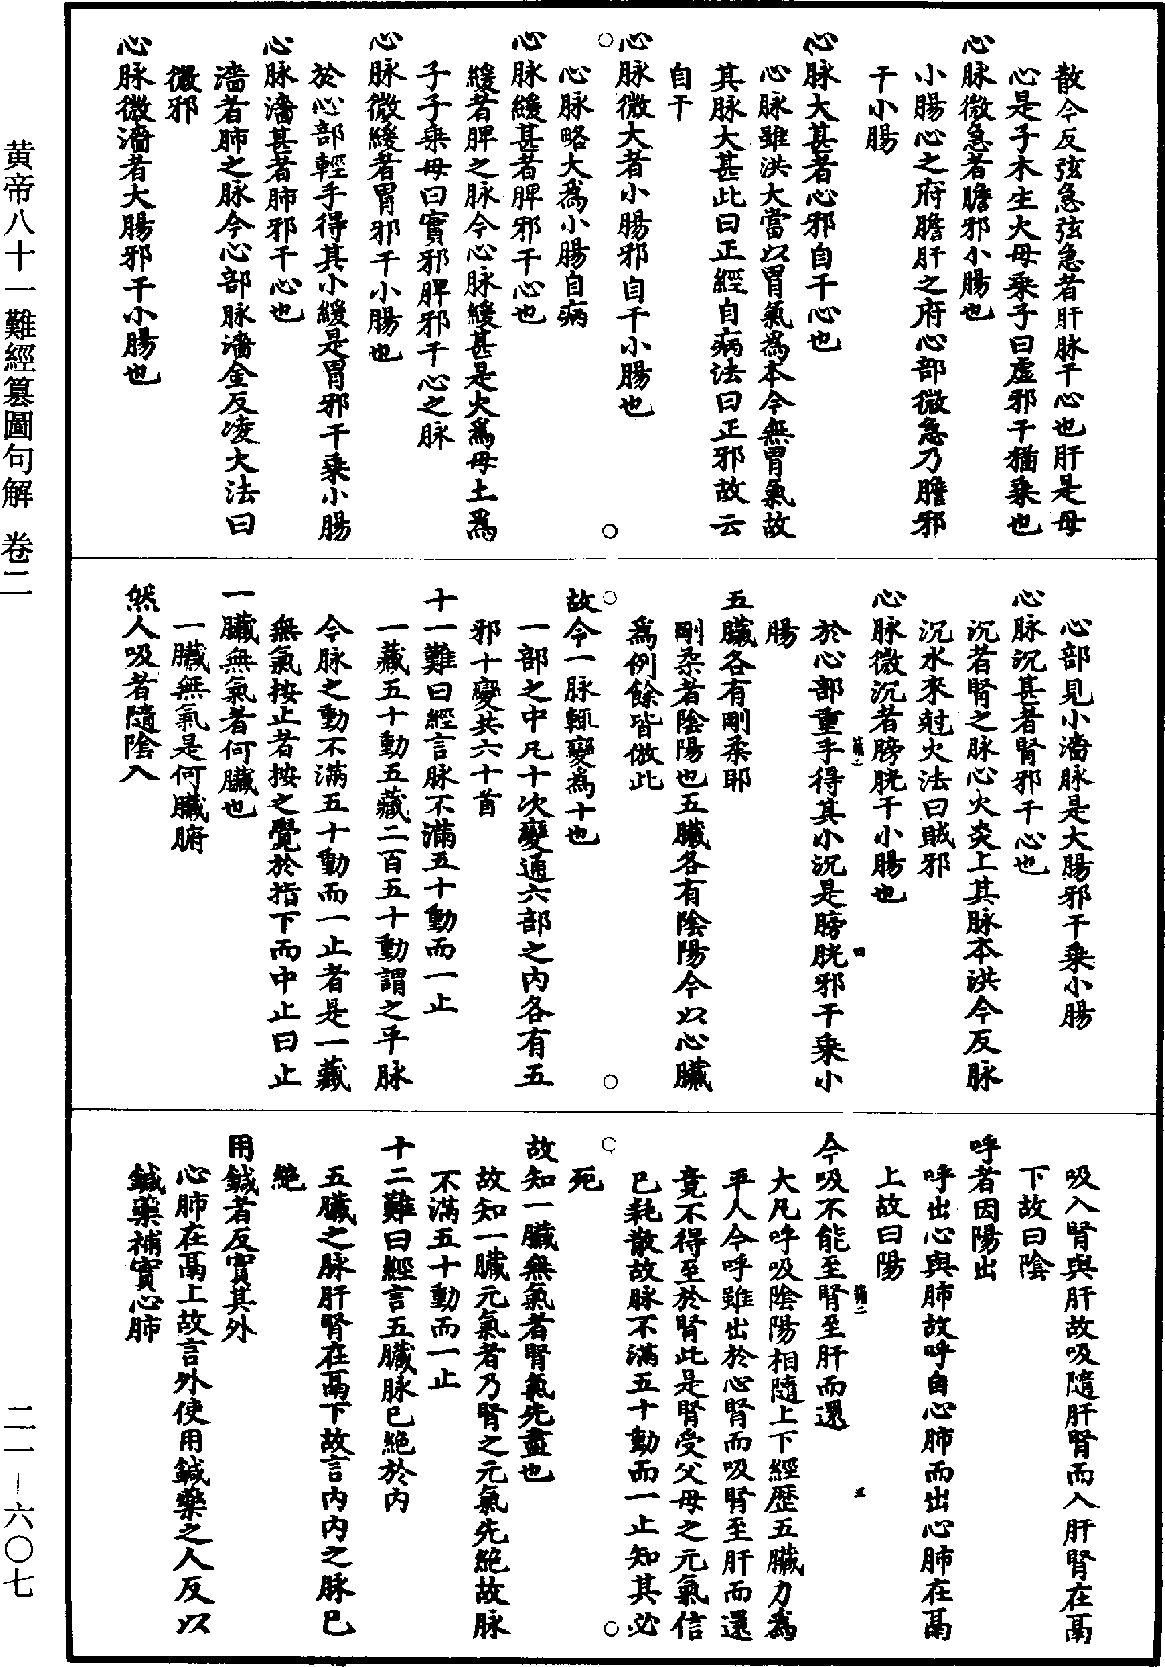 散今反弦急弦急者肝脉干心也肝是母
心是子木生火母乘子曰虛邪干猶乘也
心脉微急者膽邪小腸也
小腸心之府膽肝之府心部微急乃膽邪
干小腸
心脉大甚者心邪自干心也
心脉雖洪大當以胃氣爲本今無胃氣故
其脉大甚此曰正經自病法曰正邪故云
自干
心脉微大者小腸邪自干小腸也
心脉略大爲小腸自病
心脉緩甚者脾邪干心也
緩者脾之脉今心脉緩甚是火爲母土爲
子子乘母曰實邪脾邪干心之脉
心脉微緩者胃邪干小腸也
於心部輕手得其小緩是胃邪干乘小腸
心脉濇甚者肺邪干心也
濇者肺之脉今心部脉濇金反凌火法曰
微邪
心脉微濇者大腸邪干小腸也
心部見小濇脉是大腸邪干乘小腸
心脉沉甚者腎邪干心也
沉者腎之脉心火炎上其脉本洪今反脉
沉水來尅火法曰賊邪
心脉微沉者膀胱干小腸也
於心部重手得其小沉是膀胱邪干乘小
腸
五臟各有剛柔耶
剛柔者陰陽也五臟各有陰陽今以心臟
爲例餘皆倣此
故令一脉輒變爲十也
一部之中凡十次變通六部之內各有五
邪十變共六十首
十一難曰經言脉不滿五十動而一止
一藏五十動五藏二百五十動謂之平脉
今脉之動不滿五十動而一止者是一藏
無氣按止者按之覺於指下而中止曰止
一臟無氣者何臟也
一臟無氣是何臟腑
然人吸者隨陰入
吸入腎與肝故吸隨肝腎而入肝腎在鬲
下故曰陰
呼者因陽出
呼出心與肺故呼自心肺而出心肺在鬲
上故曰陽
今吸不能至腎至肝而還
大凡呼吸陰陽相隨上下經歷五臟力爲
平人今呼雖出於心腎而吸腎至肝而還
竟不得至於腎此是腎受父母之元氣信
已耗散故脉不滿五十動而一止知其必
死
故知一臟無氣者腎氣先盡也
故知一臟元氣者乃腎之元氣先絕故脉
不滿五十動而一止
十二難曰經言五臟脉已絕於內
五臟之脉肝腎在鬲下故言內內之脉已
絕
用鍼者反實其外
心肺在鬲上故言外使用鍼藥之人反以
鍼藥補實心肺
黄帝八十一難經纂圖句解 卷二
二一-六〇七